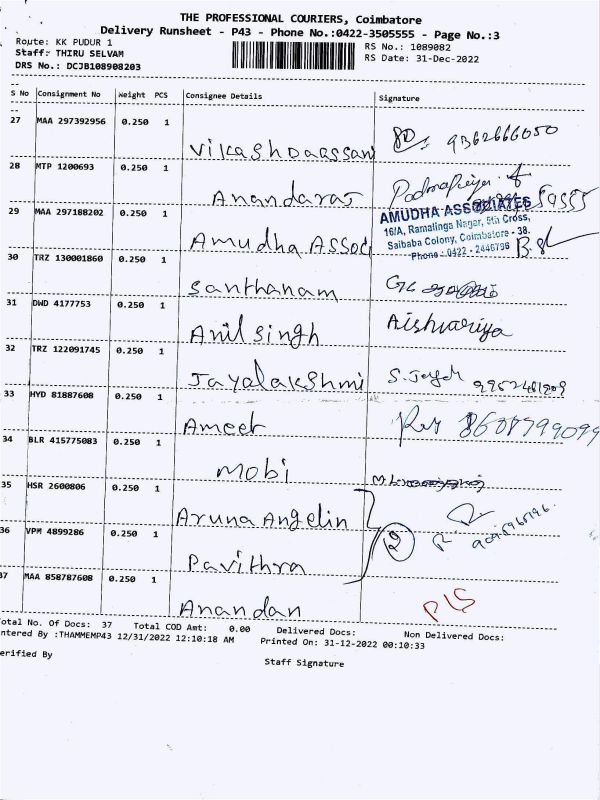 THE PROFESSIONAL COURIERS, Coimbatore
Delivery Runsheet - P43 - Phone No.:0422-3505555 - Page No.:3
Route: KK PUDUR 1
RS No.: 1089082
Staff: THIRU SELVAM
RS Date: 31-Dec-2022
DRS No.: DCJB108908203
S No Consignment No Weight PCS Consignee Details Signature
27 MAA 297392956 0.250 1
Vikash Daassani 9362666050
28 MTP 1200693 0.250 1
Anandaraj
29 MAA 297188202 0.250 1
Amudha Associ
AMUDHA ASSOCIATES
16/A, Ramalinga Nagar, 5th Cross,
Saibaba Colony, Coimbatore - 38.
Phone : 0422 - 2446796
30 TRZ 130001860 0.250 1
Santhanam
31 DWD 4177753 0.250 1
Anil singh Aishwariya
32 TRZ 122091745 0.250 1
Jayalakshmi
33 HYD 81887608 0.250 1
Ameer 8608799099
34 BLR 415775083 0.250 1
Mobi
35 HSR 2600806 0.250 1
Aruna Angelin
36 VPM 4899286 0.250 1
Pavithra
37 MAA 858787608 0.250 1
Anandan
Total No. Of Docs: 37 Total COD Amt: 0.00 Delivered Docs: Non Delivered Docs:
ntered By :THAMMEMP43 12/31/2022 12:10:18 AM Printed On: 31-12-2022 00:10:33
erified By
Staff Signature